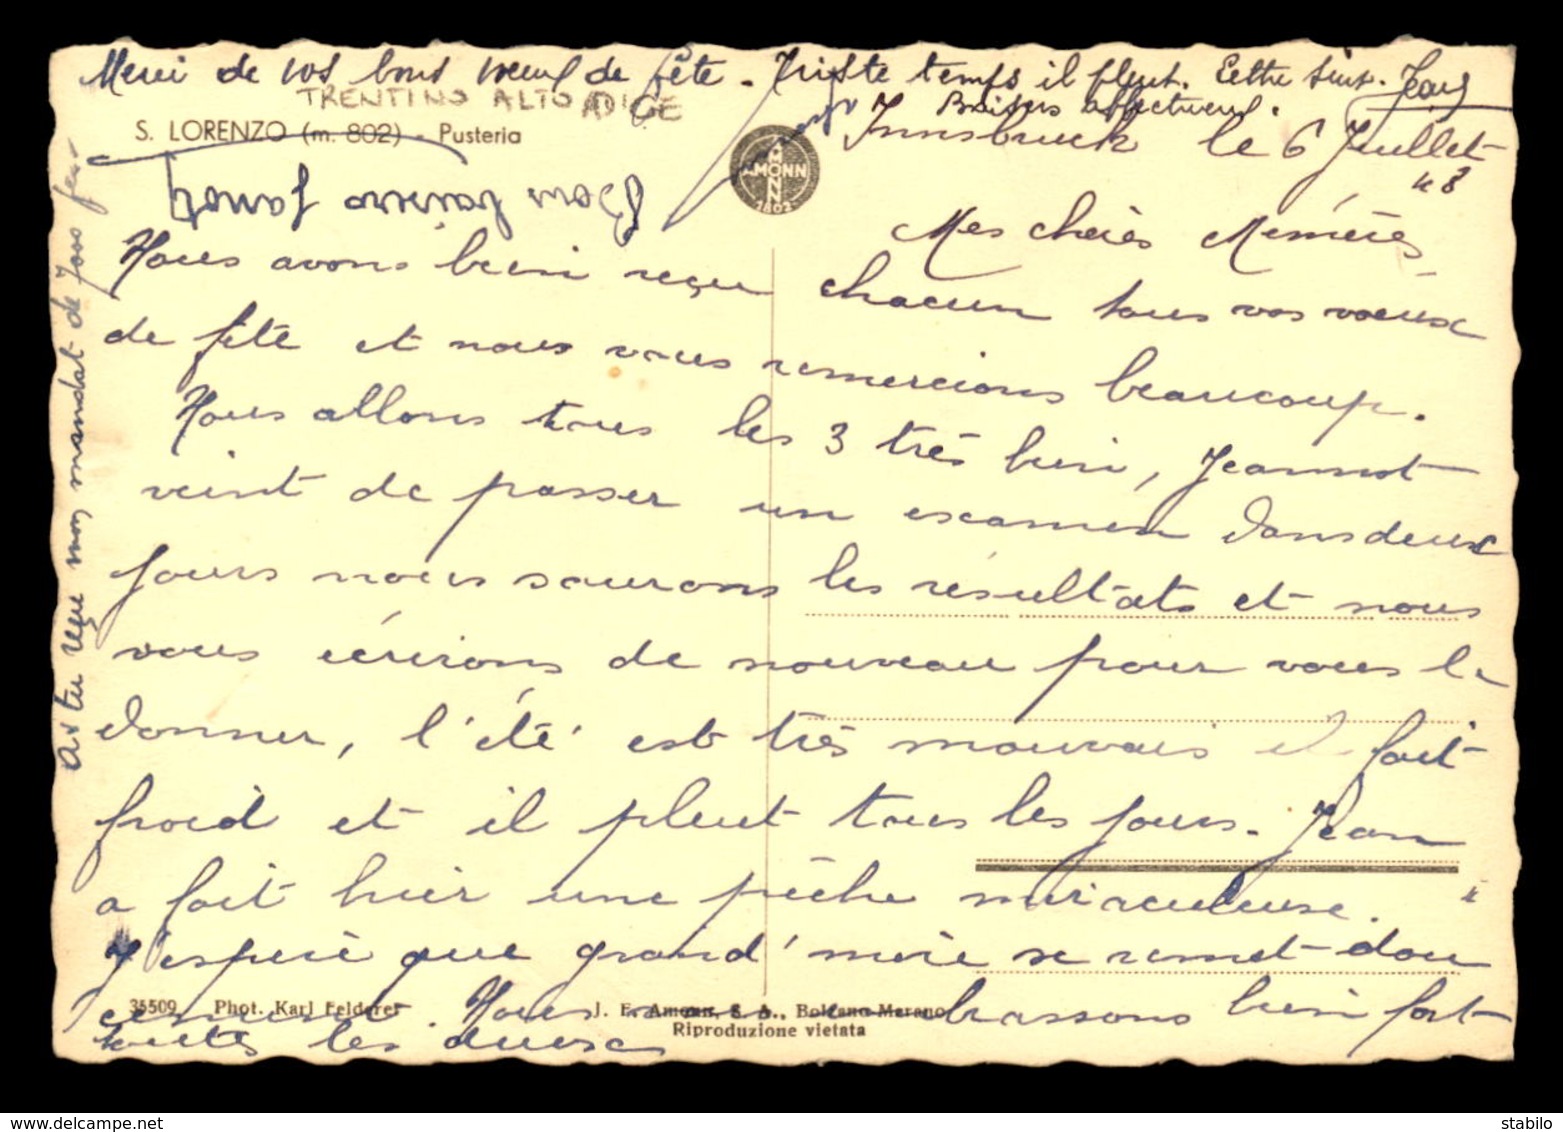 Merci de vos bons voeux de fête - Triste temps il pleut. Lettre suit. Jean
Baisers affectueux.
TRENTINO ALTO ADIGE
S. LORENZO (m. 802) - Pusteria
AMONN
AMONN
1802
Bons baisers Janot
Innsbruck le 6 Juillet
48
Mes chères Mémères,
Nous avons bien reçu chacun tous vos voeux
de fête et nous vous remercions beaucoup.
Nous allons tous les 3 très bien, Jeannot
vient de passer un examen dans deux
jours nous saurons les résultats et nous
vous écrirons de nouveau pour vous le
donner, l'été est très mauvais il fait
froid et il pleut tous les jours. Jean
a fait hier une pêche miraculeuse.
J'espère que grand'mère se remet dou
cement. Nous vous embrassons bien fort
toutes les deux
As tu reçu mon mandat de 7000
35509 Phot. Karl Felderer
J. F. Amonn, S. A., Bolzano-Merano
Riproduzione vietata
stabilo